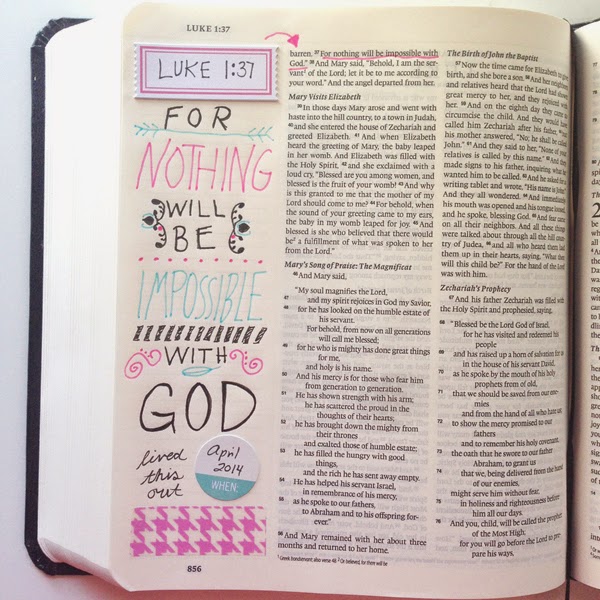 LUKE 1:37
LUKE 1:37
FOR
NOTHING
WILL
BE
IMPOSSIBLE
WITH
GOD
lived
this
out
April
2014
WHEN:
856
barren. 37 For nothing will be impossible with
God." 38 And Mary said, "Behold, I am the ser-
vant of the Lord; let it be to me according to
your word." And the angel departed from her.
Mary Visits Elizabeth
39 In those days Mary arose and went with
haste into the hill country, to a town in Judah,
40 and she entered the house of Zechariah and
greeted Elizabeth. 41 And when Elizabeth
heard the greeting of Mary, the baby leaped
in her womb. And Elizabeth was filled with
the Holy Spirit, 42 and she exclaimed with a
loud cry, "Blessed are you among women, and
blessed is the fruit of your womb! 43 And why
is this granted to me that the mother of my
Lord should come to me? 44 For behold, when
the sound of your greeting came to my ears,
the baby in my womb leaped for joy. 45 And
blessed is she who believed that there would
be a fulfillment of what was spoken to her
from the Lord."
Mary's Song of Praise: The Magnificat
46 And Mary said,
"My soul magnifies the Lord,
47 and my spirit rejoices in God my Savior,
48 for he has looked on the humble estate of
his servant.
For behold, from now on all generations
will call me blessed;
49 for he who is mighty has done great things
for me,
and holy is his name.
50 And his mercy is for those who fear him
from generation to generation.
51 He has shown strength with his arm;
he has scattered the proud in the
thoughts of their hearts;
52 he has brought down the mighty from
their thrones
and exalted those of humble estate;
53 he has filled the hungry with good
things,
and the rich he has sent away empty.
54 He has helped his servant Israel,
in remembrance of his mercy,
55 as he spoke to our fathers,
to Abraham and to his offspring for-
ever."
56 And Mary remained with her about three
months and returned to her home.
The Birth of John the Baptist
57 Now the time came for Elizabeth to give
birth, and she bore a son. 58 And her neighbors
and relatives heard that the Lord had shown
great mercy to her, and they rejoiced with
her. 59 And on the eighth day they came to
circumcise the child. And they would have
called him Zechariah after his father, 60 but
his mother answered, "No; he shall be called
John." 61 And they said to her, "None of your
relatives is called by this name." 62 And they
made signs to his father, inquiring what he
wanted him to be called. 63 And he asked for a
writing tablet and wrote, "His name is John."
And they all wondered. 64 And immediately
his mouth was opened and his tongue loosed,
and he spoke, blessing God. 65 And fear came
on all their neighbors. And all these things
were talked about through all the hill coun-
try of Judea, 66 and all who heard them laid
them up in their hearts, saying, "What then
will this child be?" For the hand of the Lord
was with him.
Zechariah's Prophecy
67 And his father Zechariah was filled with
the Holy Spirit and prophesied, saying,
68 "Blessed be the Lord God of Israel,
for he has visited and redeemed his
people
69 and has raised up a horn of salvation for us
in the house of his servant David,
70 as he spoke by the mouth of his holy
prophets from of old,
71 that we should be saved from our ene-
mies
and from the hand of all who hate us;
72 to show the mercy promised to our
fathers
and to remember his holy covenant,
73 the oath that he swore to our father
Abraham, to grant us
74 that we, being delivered from the hand
of our enemies,
might serve him without fear,
75 in holiness and righteousness before
him all our days.
76 And you, child, will be called the prophet
of the Most High;
for you will go before the Lord to pre-
pare his ways,